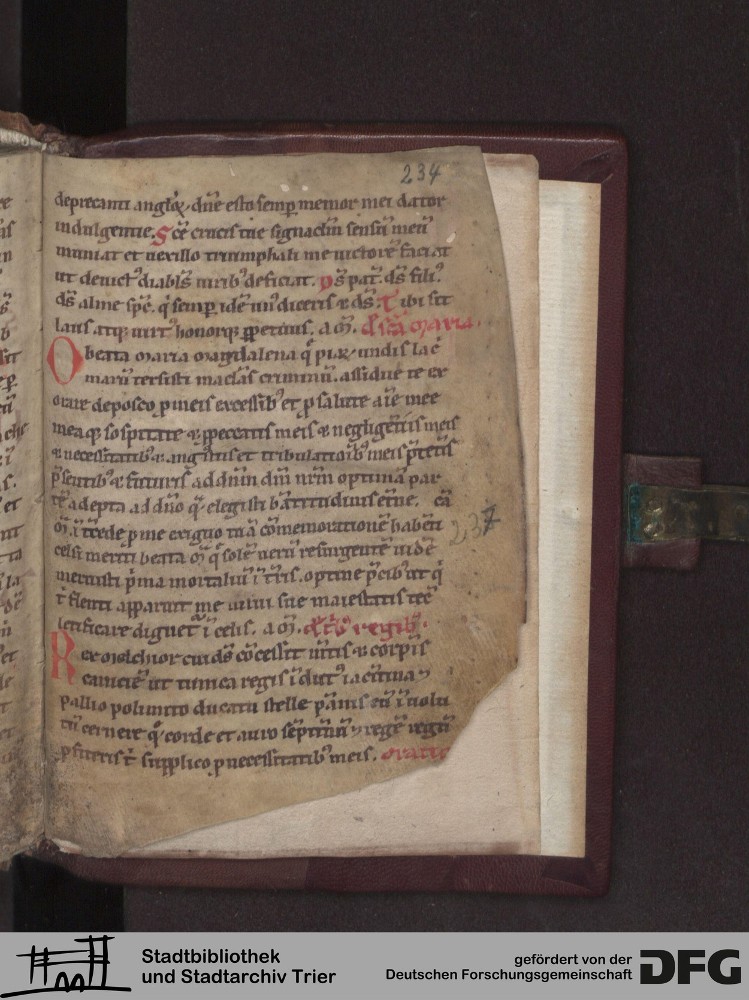 234
deprecanti angl'oꝝ. dn̄e esto semꝑ memor mei dator
indulgentie. Sc̄e crucis tue signaclm̄ sensū meū
muniat et uexillo triumphali me uictorē faciat
ut deuict' diabl's uirib' deficiat. ds̄ pat'. ds̄ fili'.
ds̄ alme sp̄c. q̇ semꝑ idē un' diceris & ds̄. Tibi sit
laus atq; uirt' honorq; ꝑpetuus. am̄. d' sc̄a maria.
O beata maria magdalena q̄ piaꝝ undis lac̄
marū tersisti mac̄las criminū. assidue te ex
orare deposco ꝓ meis excessib' et ꝓ salute aīe mee
meaq; sospitate & ꝓ peccatis meis & negligētiis meis
& necessitatib' & angustiis et tribulatioīb' meis p̄teritis
p̄sentib' & futuris ad dnm̄ dm̄ nrm̄ optimā par
tē adepta ad dn̄o q̄ elegisti b̄atitudinis et̄ne.
ꝓ me exiguo tuā cōmemorationē habeat
237
celsi meriti beata m̄ q̄ solē uerū resurgentē uidē
meruisti p̄ma mortaliū ī t'ris. optine p̄cib' ut q̇
t' flenti apparuit me uisu sue maiestatis
letificare dignet' ī celis. am̄. d' t'b' regib'.
Rex melchior cui ds̄ cōcessit uitis & corpis
caniciē ut tunica regis īdut' iacinctina
pallio polimito ducatu stelle p̄uius eū ī uolu
tū cernere q' corde et auro
supplico ꝓ necessitatib' meis. oratio
Stadtbibliothek
und Stadtarchiv Trier
gefördert von der
Deutschen Forschungsgemeinschaft
DFG